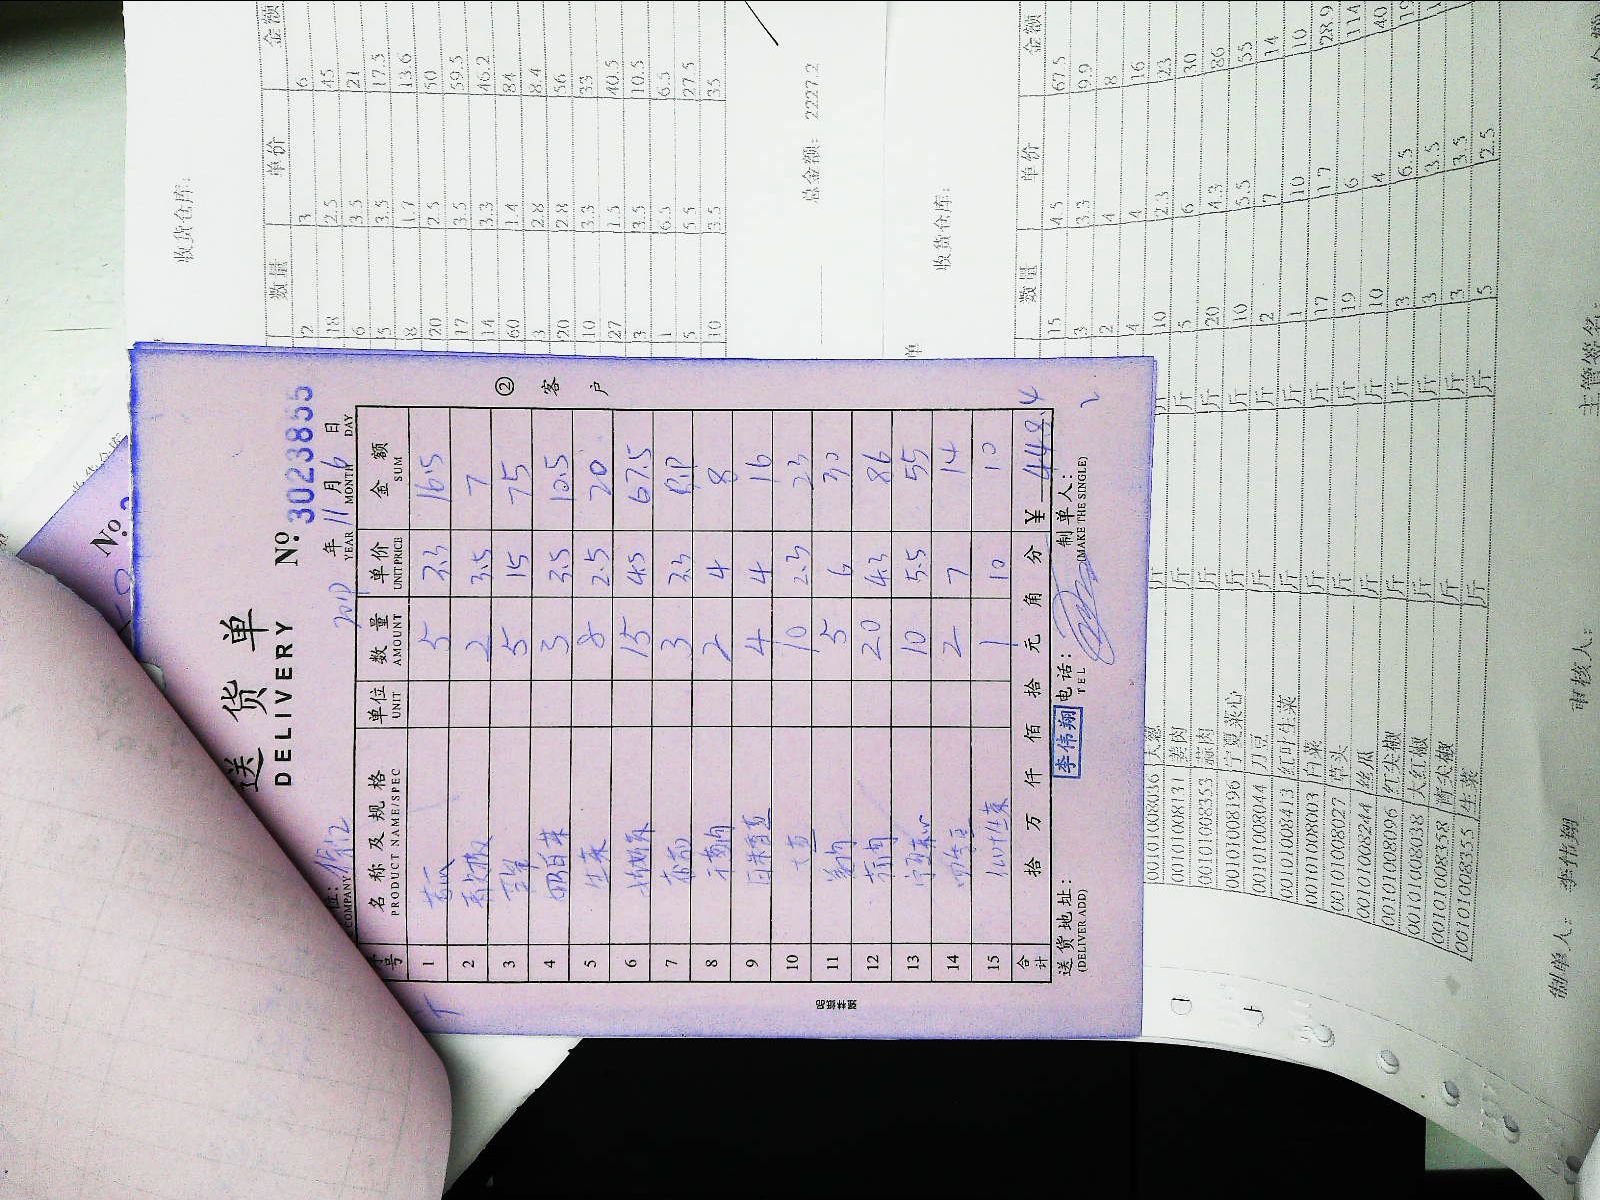 送货单
DELIVERY
№ 3023855
年 11 月 6 日
YEAR MONTH DAY
COMPANY
序号 名称及规格 单位 数量 单价 金额
PRODUCT NAME/SPEC UNIT AMOUNT UNIT PRICE SUM
1 5 3.3 16.5
2 2 3.5 7
3 5 15 75
4 3 3.5 10.5
5 生菜 8 2.5 20
6 15 4.5 67.5
7 3 3.3 9.9
8 2 4 8
9 4 4 16
10 大葱 10 2.3 23
11 姜肉 5 6 30
12 蒜肉 20 4.3 86
13 宁夏菜心 10 5.5 55
14 2 7 14
15 红叶生菜 1 10 10
合计 拾 万 仟 佰 拾 元 角 分 ¥ 448.4
送货地址: 李伟翔 电话: 制单人:
(DELIVER ADD) TEL (MAKE THE SINGLE)
② 客户
№
收货仓库:
数量 单价 金额
2 3 6
18 2.5 45
6 3.5 21
5 3.5 17.5
8 1.7 13.6
20 2.5 50
17 3.5 59.5
14 3.3 46.2
60 1.4 84
3 2.8 8.4
20 2.8 56
10 3.3 33
27 1.5 40.5
3 3.5 10.5
1 6.5 6.5
5 5.5 27.5
10 3.5 35
总金额: 2227.2
单
收货仓库:
数量 单价 金额
15 4.5 67.5
3 3.3 9.9
2 4 8
4 4 16
00101008036 大葱 斤 10 2.3 23
00101008131 姜肉 斤 5 6 30
00101008353 蒜肉 斤 20 4.3 86
00101008196 宁夏菜心 斤 10 5.5 55
00101008044 刀豆 斤 2 7 14
00101008413 红叶生菜 斤 1 10 10
00101008003 白菜 斤 17 1.7 28.9
00101008027 草头 斤 19 6 114
00101008244 丝瓜 斤 10 4 40
00101008096 红尖椒 斤 3 6.5
00101008038 大红椒 斤 3 3.5
00101008358 青尖椒 斤 3 3.5
00101008355 生菜 斤 5 2.5
制单人: 李伟翔 审核人: 主管签名: